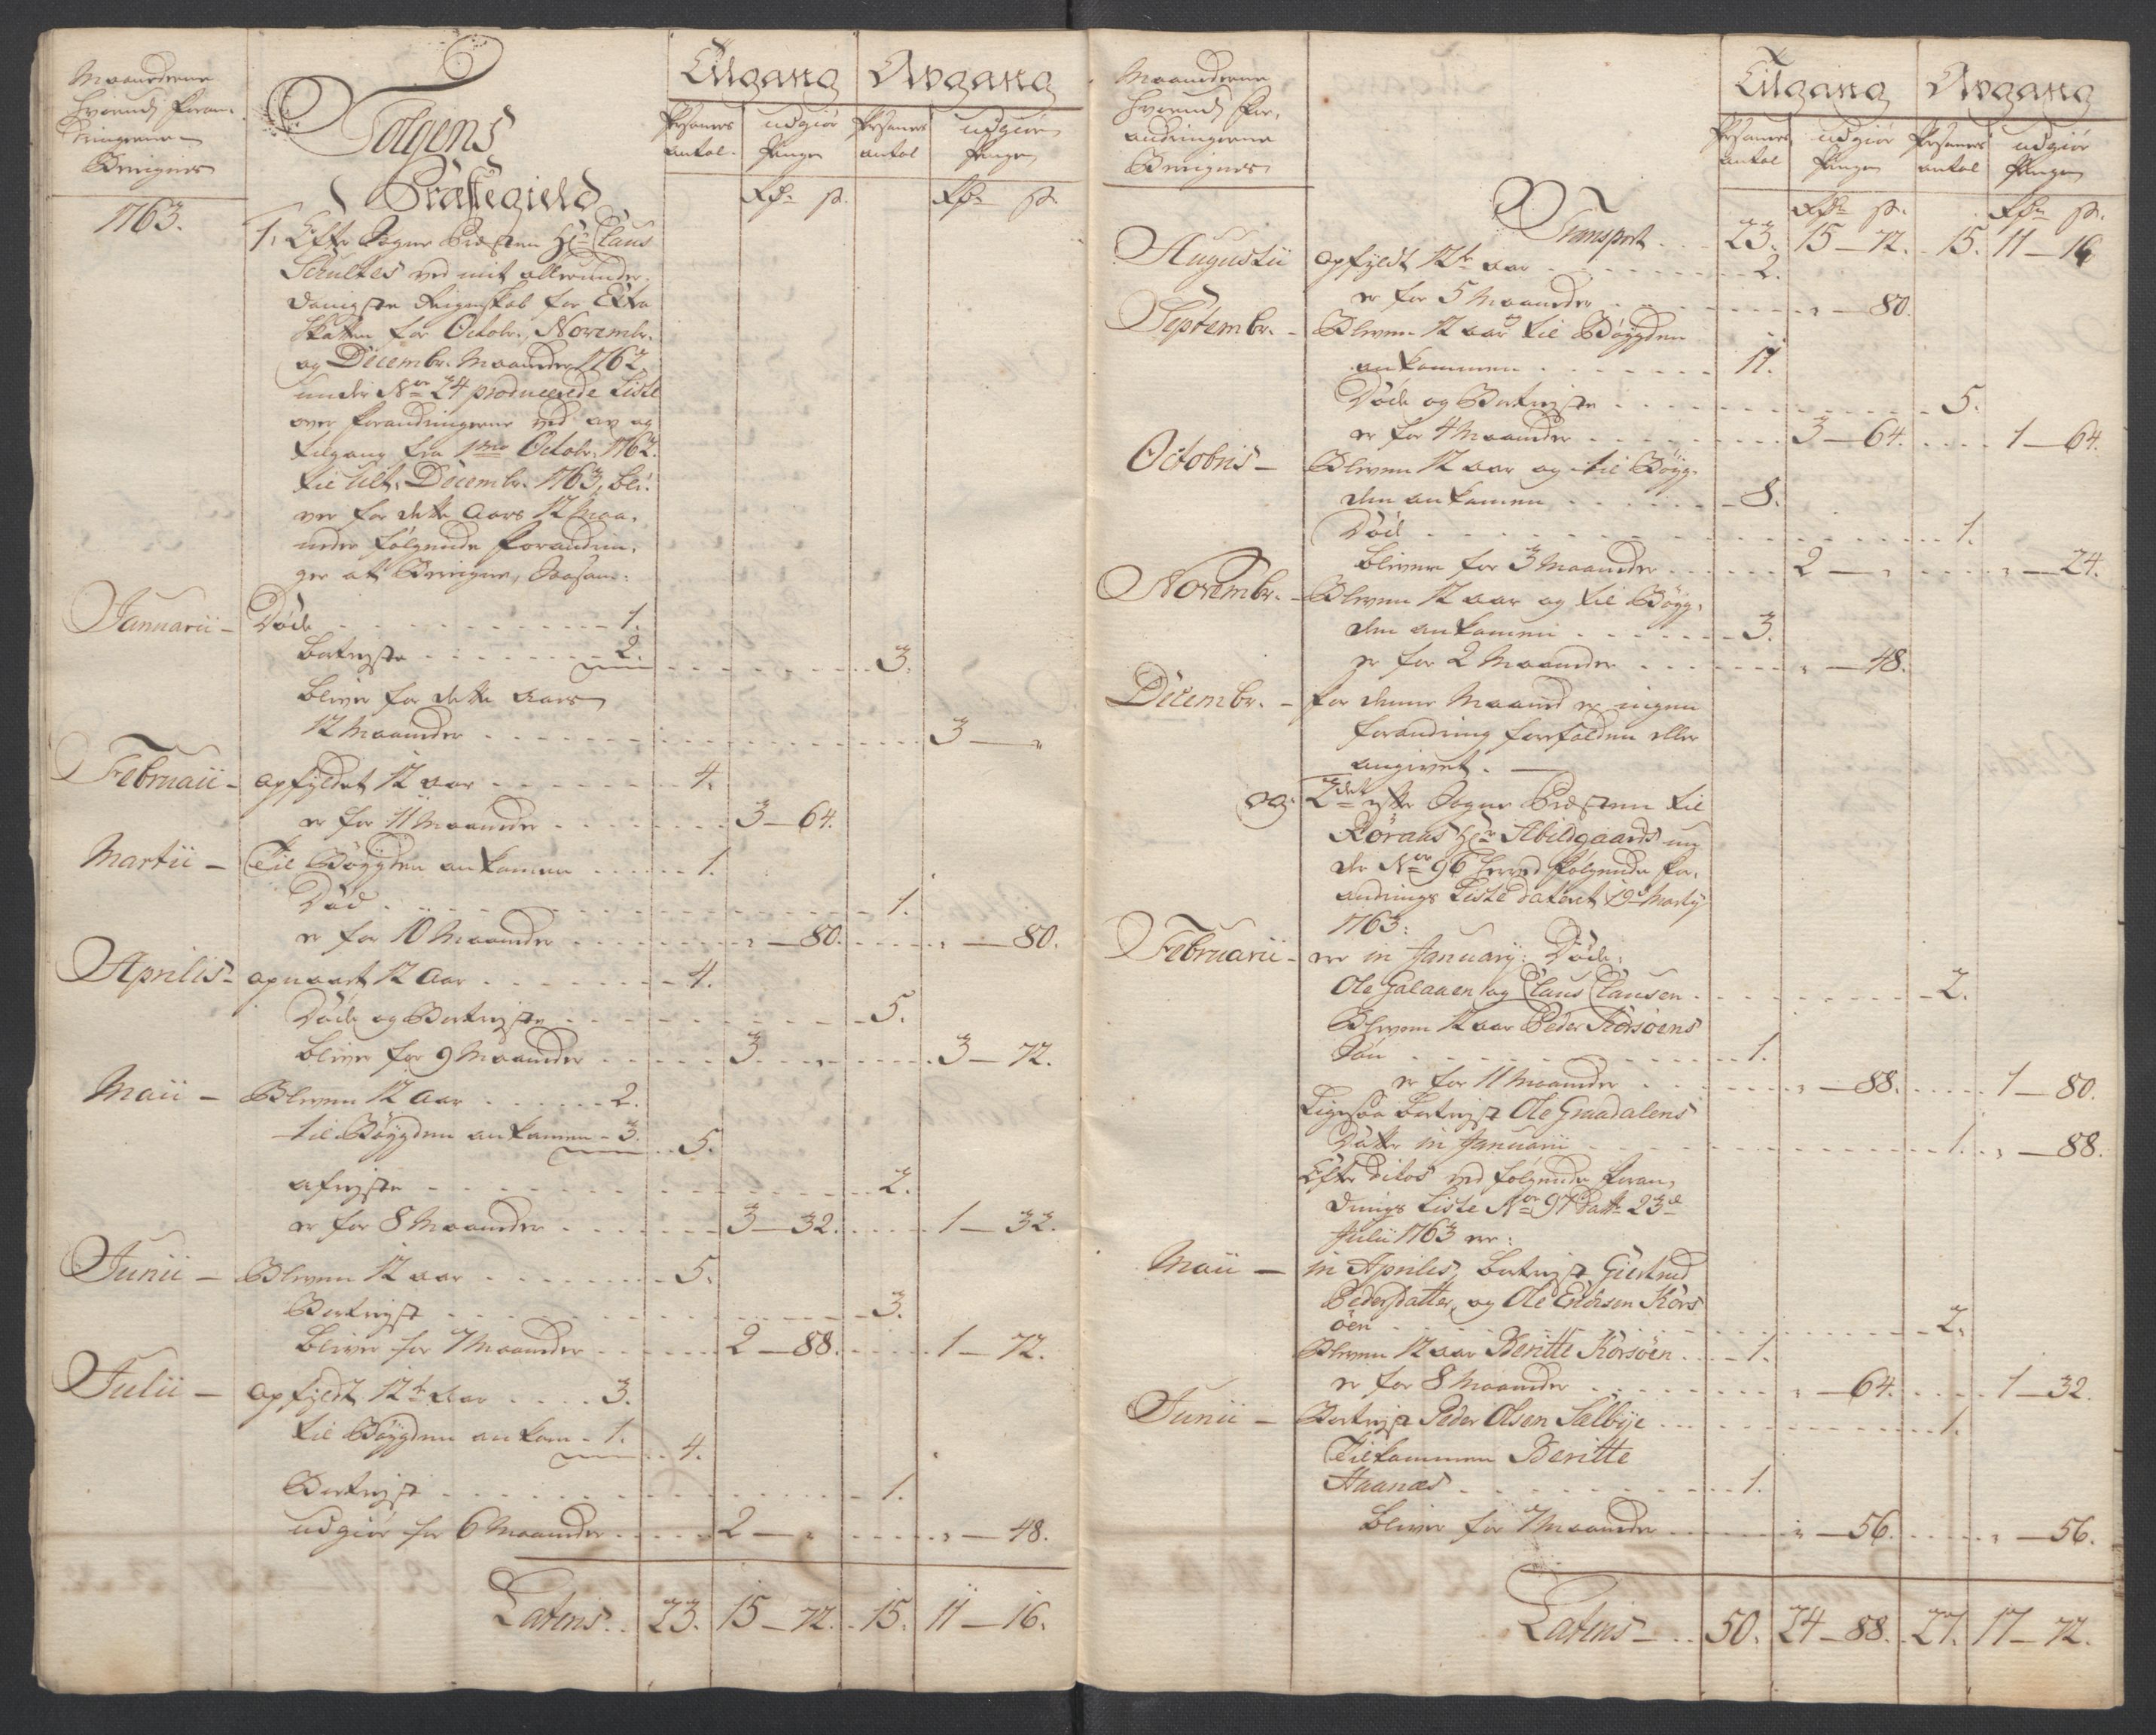 Maanederne
hvorudj foran-
dringerne
Beregnes
Tilgang
Avgang
Persohners
antal.
udgiør
Penge
Persohners
antal
udgiør
Penge
Rdr s.
Rdr s.
Tolgens
Præstegield
1763.
1, Efter Sogne Præsten Hr Claus
Schultes ved mit allerunder-
danigste Regenskab for Extra
Skatten for Octobr. Novembr.
og Decembr. Maaneder 1762
under No 24 producerede Liste
over forandringerne ved av og
tilgang fra 1mo Octobr: 1762.
til Ult. Decembr. 1763, bli-
ver for dette Aars 12 Maa-
neder følgende forandrin-
ger att Beregne, Saasom:
Januarii - Døde 1.
bortreyste 2. 3.
bliver for dette Aars
12 Maaneder 3 — "
Februarii - opfyldet 12 aar 4.
er for 11 Maaneder 3 — 64.
Martii - Til Bøygden ankomen 1.
Død 1.
er for 10 Maaneder " — 80. " — 80.
Aprilis - opnaaet 12 Aar 4.
Døde og Bortreyste 5.
bliver for 9 Maaneder 3 — " 3 — 72.
Maii - Bleven 12 Aar 2.
til Bøygden ankomen - 3. 5.
afreyste 2.
er for 8 Maaneder 3 — 32. 1 — 32.
Junii - Bleven 12 aar 5.
Bortreyst 3.
bliver for 7 Maaneder 2 — 88. 1 — 72.
Julii - opfyldt 12te Aar 3.
til Bøygden ankom - 1. 4.
Bortreyst 1.
udgiør for 6 Maaneder 2 — " " — 48.
Lateris 23. 15 — 72. 15. 11 — 16.
Maanederne
hvorudj for-
andringerne
Beregnes
Tilgang
Avgang
Persohners
antal
udgiør
Penge
Persohners
antal
udgiør
Penge
Rdr s.
Rdr s.
Transport 23. 15 — 72. 15. 11 — 16
Augustii opfyldt 12te aar 2.
er for 5 Maaneder " — 80.
Septembr. - Bleven 12 aar til Bøygden
ankommen 11.
Døde og Bortreyste 5.
er for 4 Maaneder 3 — 64. 1 — 64.
Octobris - Bleven 12 aar og til Bøyg-
den ankomen 8.
Død 1.
bliver for 3 Maaneder 2 — " " — 24.
Novembr. - Bleven 12 aar og til Bøyg-
den ankomen 3.
er for 2 Maaneder " — 48.
Decembr. - for denne Maaned er ingen
forandring forefalden eller
angivet.
og 2det efter Sogne Præsten til
Røraas Hr Abildgaards un-
der No 96 herved følgende for-
andrings Liste dateret 19de Martij
1763:
Februarii - er in Januarij: Døde:
Ole Galaaen og Claus Clausen 2.
Bleven 12 aar Peder Korsøens
Søn 1.
er for 11 Maaneder " — 88. 1 — 80.
Ligesaa bortreyst Ole Graadalens
Datter in Januarii 1. " — 88.
Efter ditos ved følgende foran-
drings Liste No 97 Dat: 23de
Julii 1763 er:
Maii - in Aprilis, bortreyst Giertrud
Pedersdatter, og Ole Erichsen Kors
øen 2.
Bleven 12 aar Beritte Korsøen 1.
er for 8 Maaneder " — 64. 1 — 32.
Junii - Bortreyst Peder Olsen Sælbye 1.
Tilkommen Beritte
Haanæs 1.
bliver for 7 Maaneder " — 56. " — 56.
Lateris 50. 24 — 88. 27. 17 — 72.